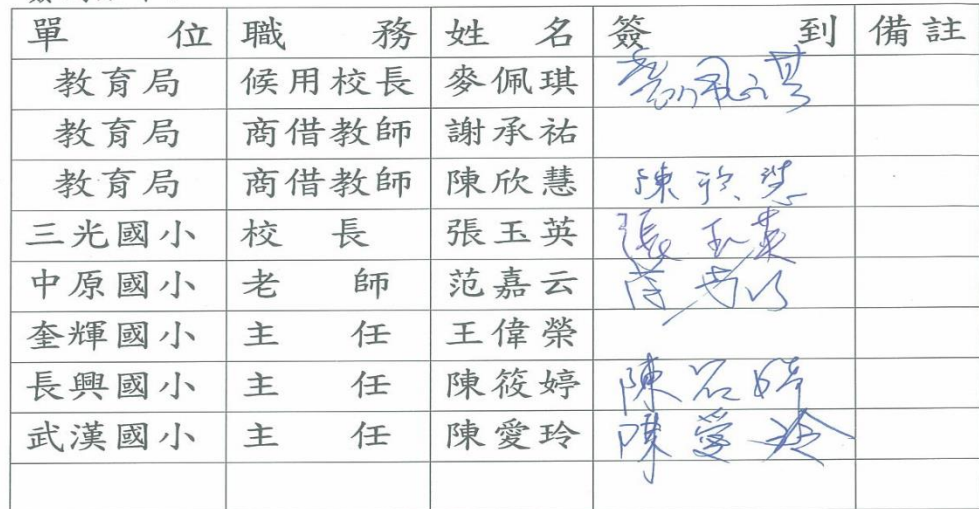 單 位 職 務 姓 名 簽 到 備註
教育局 候用校長 麥佩琪
教育局 商借教師 謝承祐
教育局 商借教師 陳欣慧 陳欣慧
三光國小 校 長 張玉英 張玉英
中原國小 老 師 范嘉云
奎輝國小 主 任 王偉榮
長興國小 主 任 陳筱婷 陳筱婷
武漢國小 主 任 陳愛玲 陳愛玲